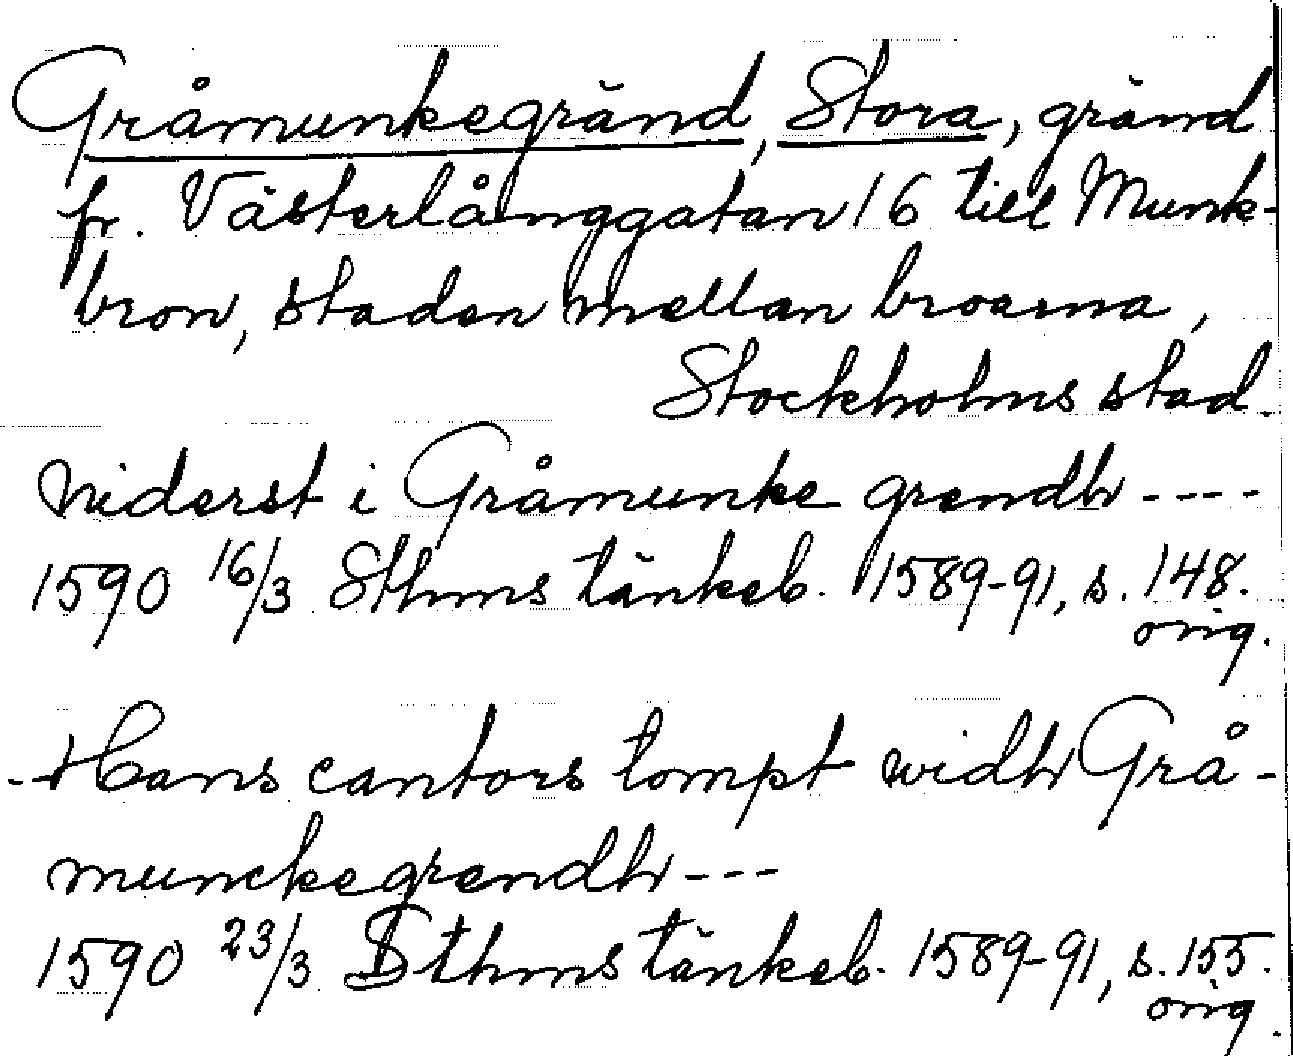 Gråmunkegränd, Stora, gränd
fr. Västerlånggatan 16 till Munk-
bron, staden mellan broarna,
Stockholms stad.
Niderst i Gråmunke grendh ----
1590 16/3 Sthms tänkeb. 1589-91, s. 148.
orig.
-Hans cantors tompt widh Grå-
munckegrendh ---
1590 23/3 Sthms tänkeb. 1589-91, s. 155.
orig.